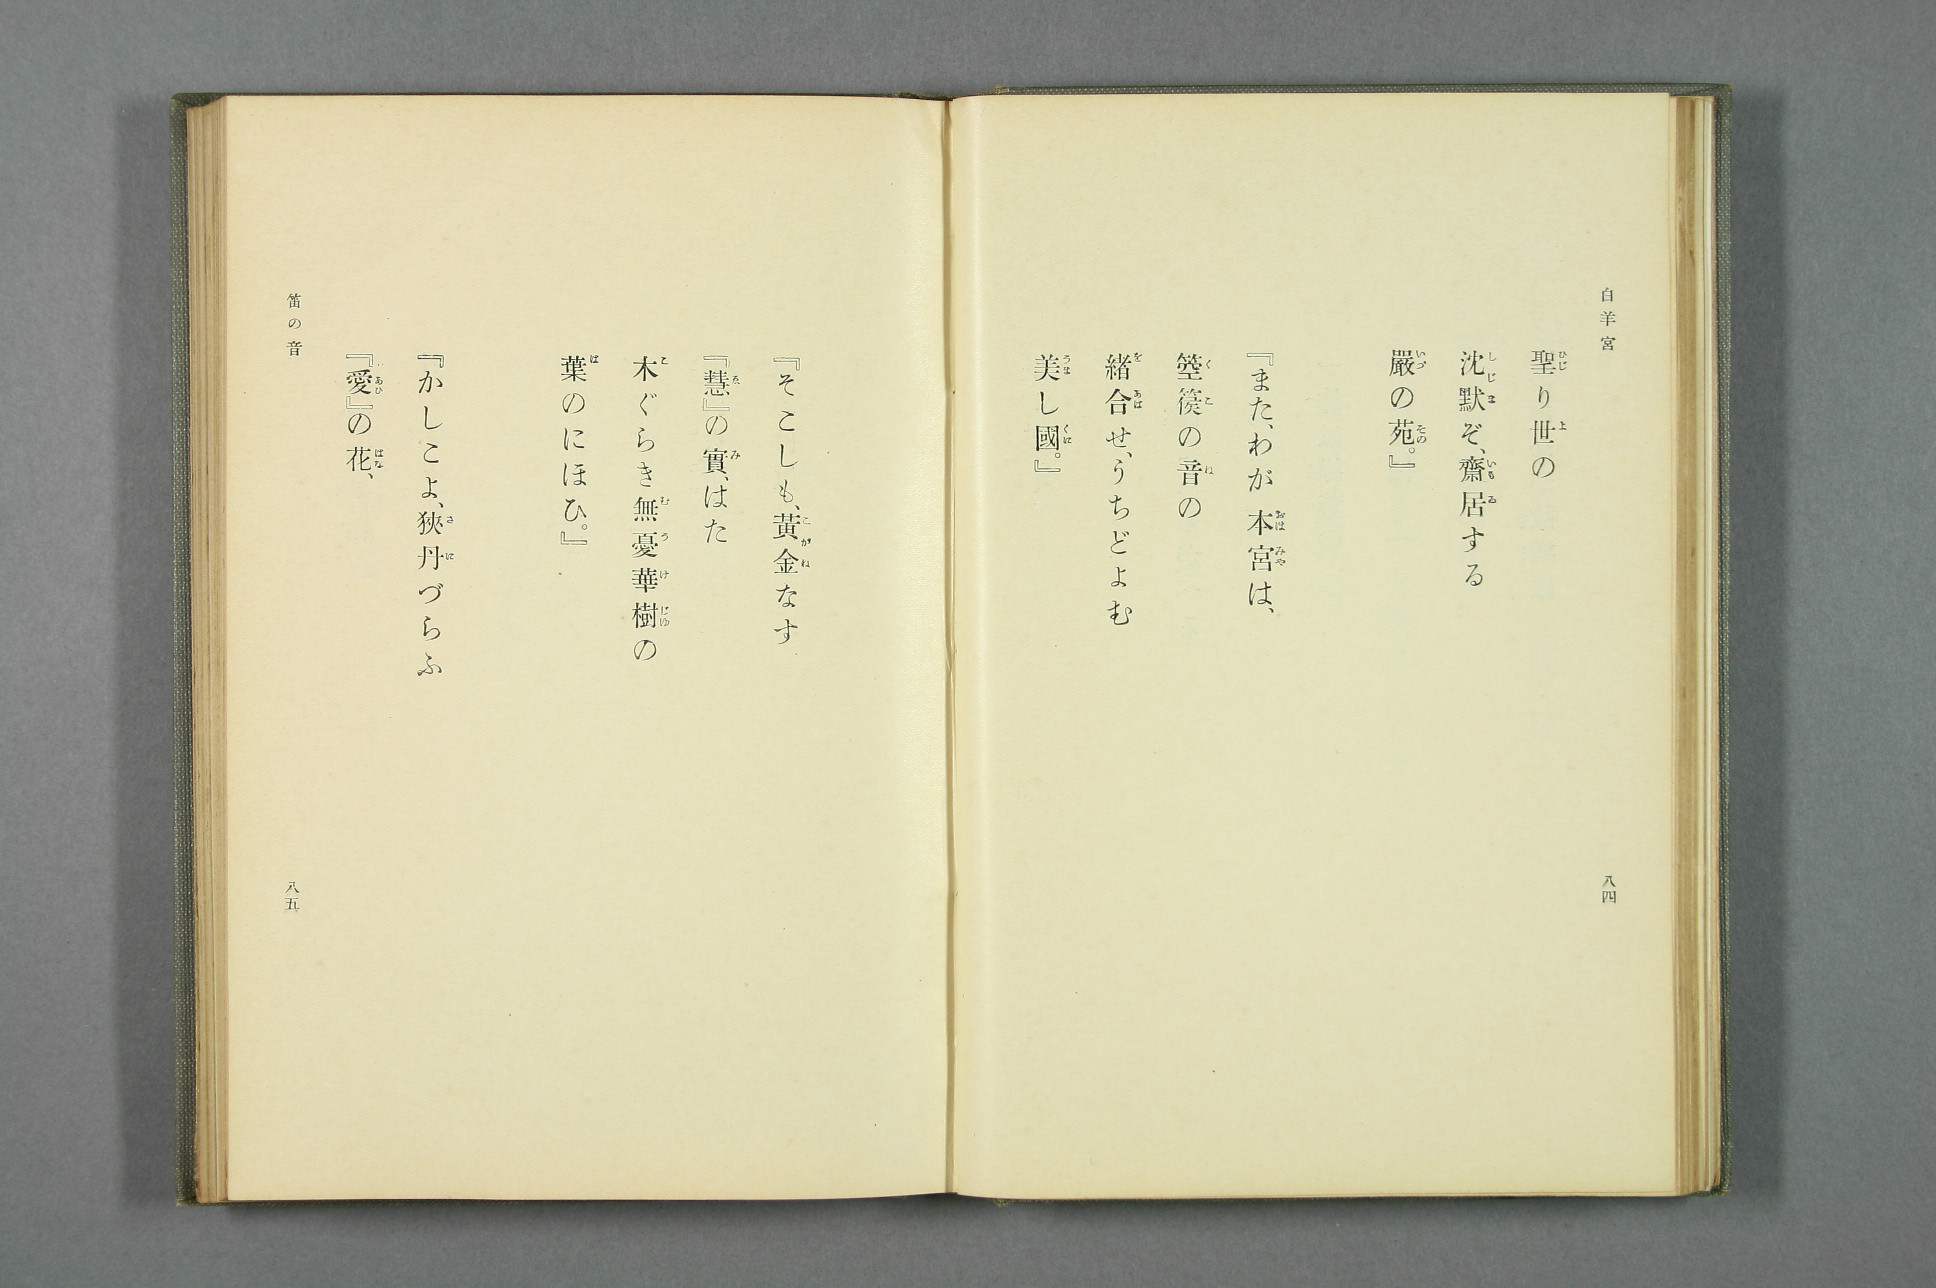 白羊宮
聖り世の
沈默ぞ、齋居する
嚴の苑。』
『また、わが本宮は、
箜篌の音の
緒合せ、うちどよむ
美し國。』
八四
『そこしも、黃金なす
『慧』の實、はた
木ぐらき無憂華樹の
葉のにほひ。』
『かしこよ、狹丹づらふ
『愛』の花、
笛の音
八五